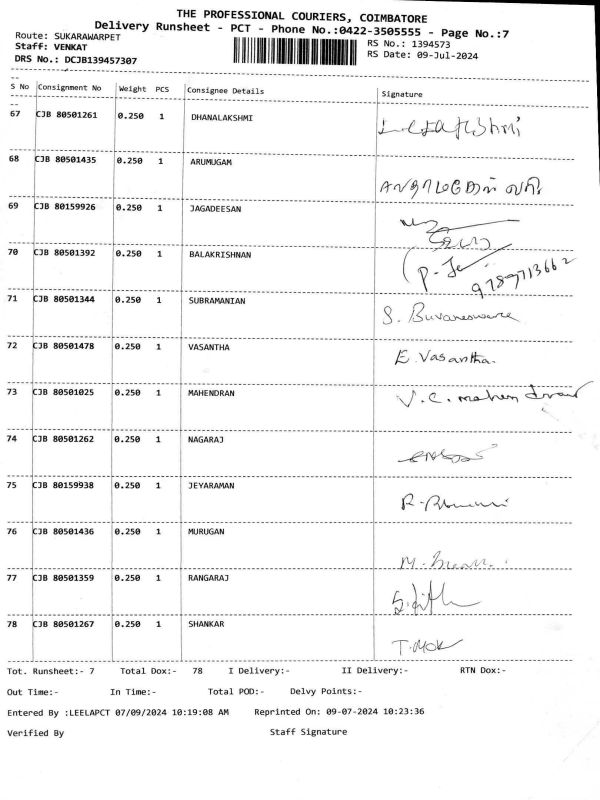 THE PROFESSIONAL COURIERS, COIMBATORE
Delivery Runsheet - PCT - Phone No.:0422-3505555 - Page No.:7
Route: SUKARAWARPET
RS No.: 1394573
Staff: VENKAT
RS Date: 09-Jul-2024
DRS No.: DCJB139457307
S No Consignment No Weight PCS Consignee Details Signature
67 CJB 80501261 0.250 1 DHANALAKSHMI
68 CJB 80501435 0.250 1 ARUMUGAM
69 CJB 80159926 0.250 1 JAGADEESAN
70 CJB 80501392 0.250 1 BALAKRISHNAN
9789713662
71 CJB 80501344 0.250 1 SUBRAMANIAN S. Buvaneswari
72 CJB 80501478 0.250 1 VASANTHA E. Vasantha.
73 CJB 80501025 0.250 1 MAHENDRAN V. C. mahendran
74 CJB 80501262 0.250 1 NAGARAJ
75 CJB 80159938 0.250 1 JEYARAMAN
76 CJB 80501436 0.250 1 MURUGAN
77 CJB 80501359 0.250 1 RANGARAJ
78 CJB 80501267 0.250 1 SHANKAR
Tot. Runsheet:- 7 Total Dox:- 78 I Delivery:- II Delivery:- RTN Dox:-
Out Time:- In Time:- Total POD:- Delvy Points:-
Entered By :LEELAPCT 07/09/2024 10:19:08 AM Reprinted On: 09-07-2024 10:23:36
Verified By Staff Signature